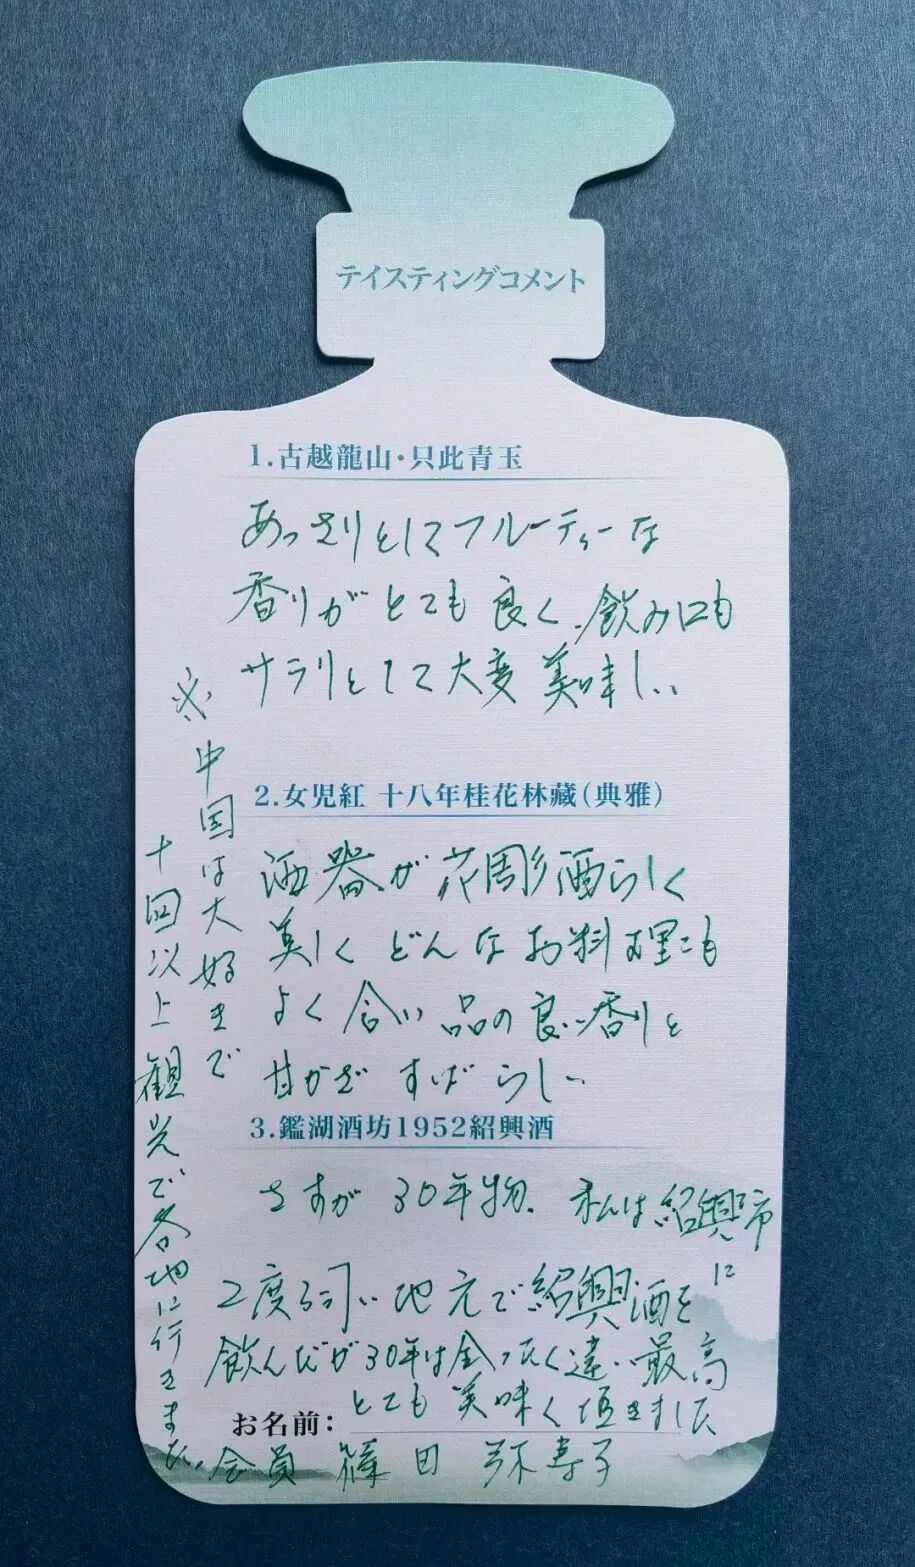 テイスティングコメント
1.古越龍山・只此青玉
あっさりとしてフルーティーな
香りがとても良く、飲み口も
サラリとして大変美味しい
2.女児紅 十八年桂花林藏(典雅)
酒器が花彫酒らしく
美しくどんなお料理にも
よく合い品の良い香りと
甘かさすばらしい
3.鑑湖酒坊1952紹興酒
さすが30年物、私は紹興市に
2度伺い地元で紹興酒を
飲んだが30年は全ったく違い最高
とても美味く頂きました
お名前：
会員 篠田 弥寿子
※中国は大好きで
十回以上観光で各地に行きました。